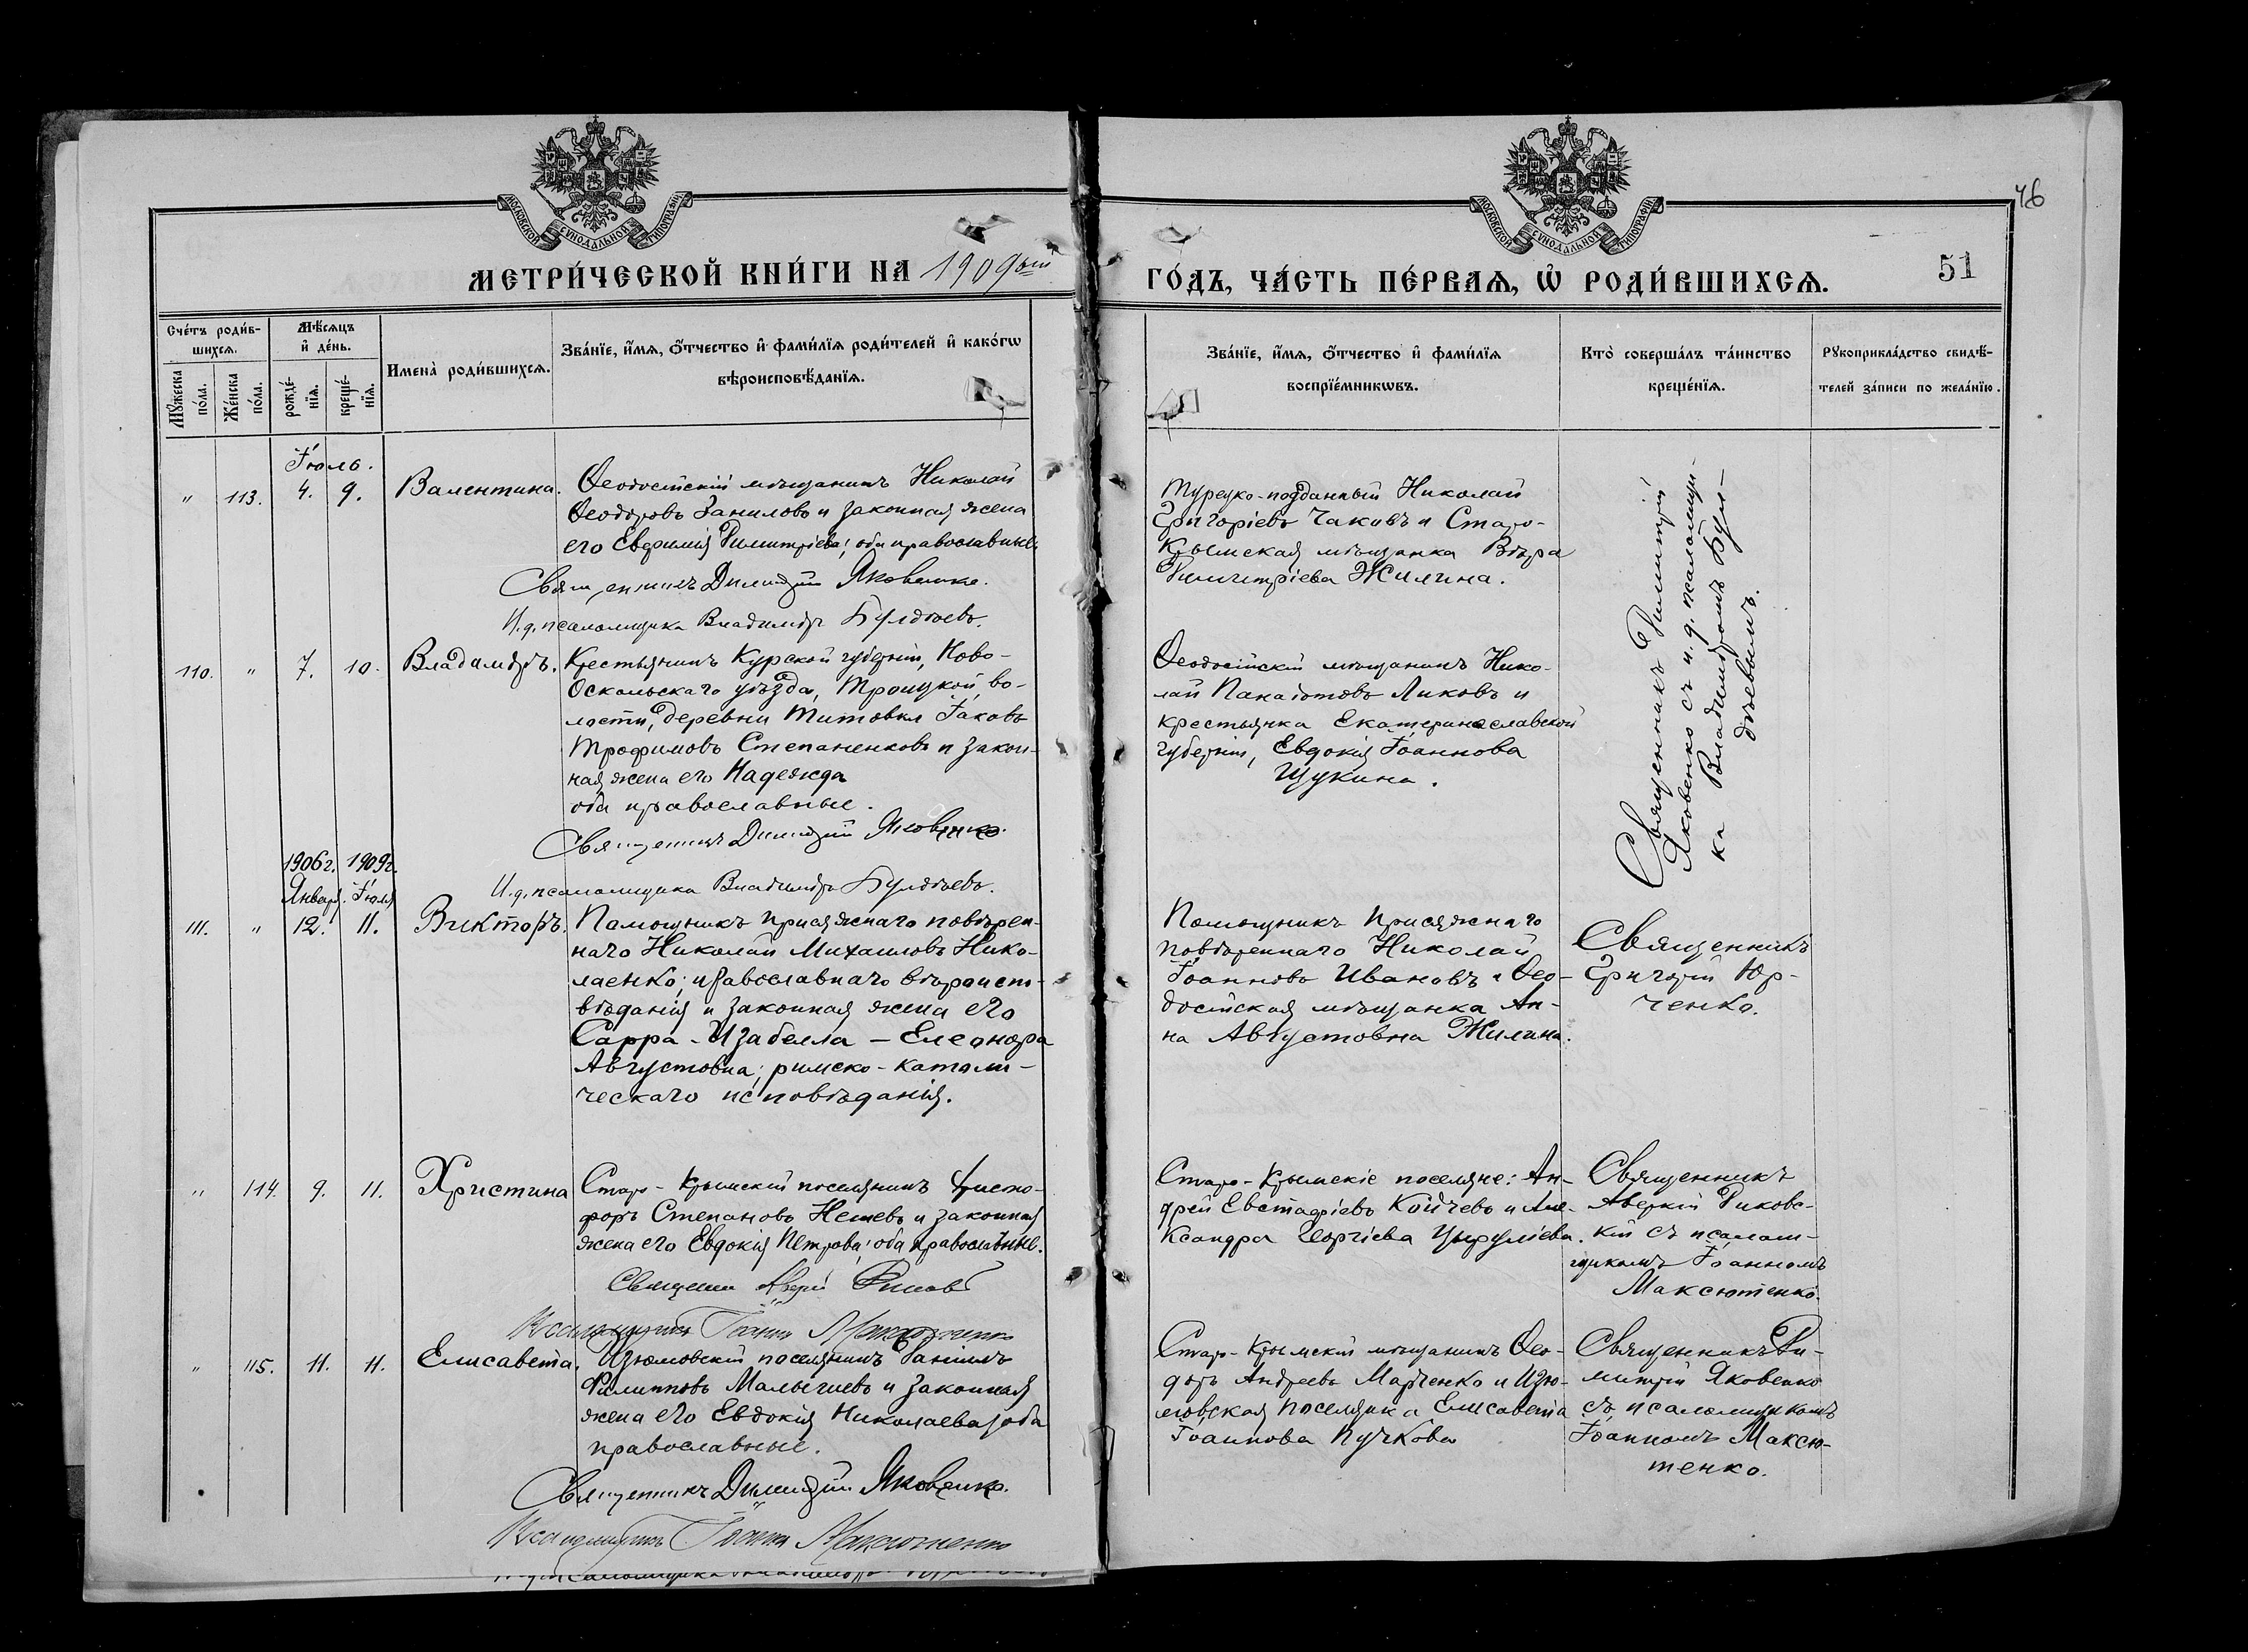 46
МОСКОВСКОЙ СУНОДАЛЬНОЙ ТИПОГРАФІИ
МОСКОВСКОЙ СУНОДАЛЬНОЙ ТИПОГРАФІИ
МЕТРИ́ЧЕСКОЙ КНИ́ГИ НА 1909ый
ГО́ДЪ, ЧА́СТЬ ПЕ́РВАѦ, Ѡ҆ РОДИ́ВШИХСѦ.
51
Сче́тъ роди́в-
шихсѧ.
Мꙋ́жеска
по́ла.
Же́нска
по́ла.
Мѣ́сѧцъ
и҆ де́нь.
рожде́-
нїѧ.
креще́-
нїѧ.
Имена̀ роди́вшихсѧ.
Зва́нїе, и҆́мѧ, ѻ҆́тчество и҆ фами́лїѧ роди́телей и҆ како́гѡ
вѣроисповѣ́данїѧ.
Зва́нїе, и҆́мѧ, ѻ҆́тчество и҆ фами́лїѧ
воспрїе́мникѡвъ.
Кто̀ соверша́лъ та́инство
креще́нїѧ.
Рꙋкоприкла́дство свидѣ́-
телей за́писи по жела́нїю.
Іюль.
" 113. 4. 9. Валентина.
Ѳеодосійскій мѣщанинъ Николай
Ѳеодоровъ Даниловъ и законная жена
его Евфимія Димитріева; оба православные.
Священникъ Димитрій Яковенко.
И.д.псаломщика Владиміръ Булдѣевъ.
Турецко-подданный Николай
Григоріевъ Чаковъ и Старо-
Крымская мѣщанка Вѣра
Димитріева Жилина.
Священникъ Димитрій
Яковенко съ и.д. псаломщи-
ка Владиміромъ Бул-
дѣевымъ.
110. " 7. 10. Владиміръ.
Крестьянинъ Курской губерніи, Ново-
Оскольскаго уѣзда, Троицкой во-
лости, деревни Титовки Іаковъ
Трофимовъ Степаненковъ и закон-
ная жена его Надежда
оба православные.
Священникъ Димитрій Яковенко.
И.д.псаломщика Владиміръ Булдѣевъ.
Ѳеодосійскій мѣщанинъ Нико-
лай Панаіотовъ Ликовъ и
крестьянка Екатеринославской
губерніи, Евдокія Іоаннова
Щукина.
1906г. 1909г.
Января. Іюля
111. " 12. 11. Викторъ.
Помощникъ присяжнаго повѣрен-
наго Николай Михаиловъ Нико-
лаенко; православнаго вѣроиспо-
вѣданія и законная жена его
Сарра-Изабелла-Елеонора
Августовна; римско-католи-
ческаго исповѣданія.
Помощникъ Присяжнаго
повѣреннаго Николай
Іоанновъ Ивановъ и Ѳео-
досійская мѣщанка Ан-
на Августовна Жилина.
Священникъ
Григорій Юр-
ченко.
" 114. 9. 11. Христина
Старо-Крымскій поселянинъ Христо-
форъ Степановъ Нешевъ и законная
жена его Евдокія Петрова; оба православные.
Псаломщикъ Іоаннъ Максютенко
Старо-Крымскіе поселяне: Ан-
дрей Евстафіевъ Койчевъ и Але-
ксандра Георгіева
Священникъ
Аверкій Виковс-
кій съ псалом-
щикомъ Іоанномъ
Максютенко.
" 115. 11. 11. Елисавета.
Изюмовскій поселянинъ Даніилъ
Филипповъ Малыгиевъ и законная
жена его Евдокія Николаева; оба
православные.
Священникъ Димитрій Яковенко.
Псаломщикъ Іоаннъ Максютенко
Старо-Крымскій мѣщанинъ Ѳео-
доръ Андреевъ Марченко и Изю-
мовская поселянка Елисавета
Іоаннова Пучкова
Священникъ Ди-
митрій Яковенко
съ псаломщикомъ
Іоанномъ Максю-
тенко.